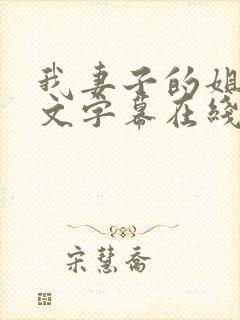 我妻子的姐
文字幕在线
宋慧乔